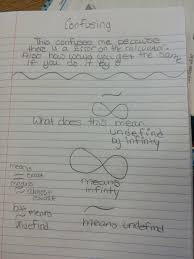 Confusing
This confuses me because
there is a error on the calculator.
Also how would you get the same
if you do it by 8
~
∞
What does this mean
undefind by
infinty
∞
means
infinity
means
means
but
means
undefind
~
means undefind